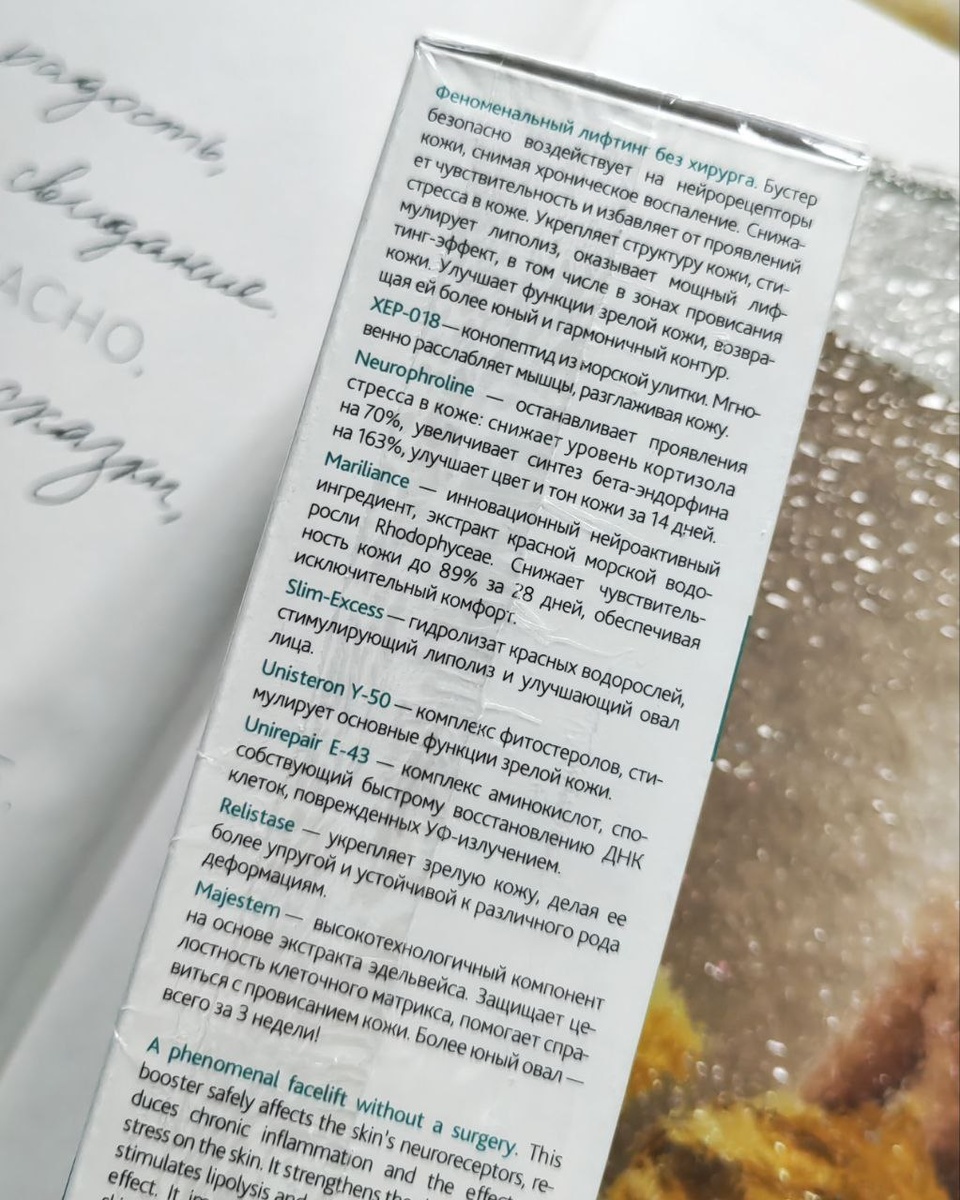 радость,
свидание,
АСНО,
сказки,
Феноменальный лифтинг без хирурга. Бустер
безопасно воздействует на нейрорецепторы
кожи, снимая хроническое воспаление. Снижа-
ет чувствительность и избавляет от проявлений
стресса в коже. Укрепляет структуру кожи, сти-
мулирует липолиз, оказывает мощный лиф-
тинг-эффект, в том числе в зонах провисания
кожи. Улучшает функции зрелой кожи, возвра-
щая ей более юный и гармоничный контур.
XEP-018 — конопептид из морской улитки. Мгно-
венно расслабляет мышцы, разглаживая кожу.
Neurophroline — останавливает проявления
стресса в коже: снижает уровень кортизола
на 70%, увеличивает синтез бета-эндорфина
на 163%, улучшает цвет и тон кожи за 14 дней.
Mariliance — инновационный нейроактивный
ингредиент, экстракт красной морской водо-
росли Rhodophyceae. Снижает чувствитель-
ность кожи до 89% за 28 дней, обеспечивая
исключительный комфорт.
Slim-Excess — гидролизат красных водорослей,
стимулирующий липолиз и улучшающий овал
лица.
Unisteron Y-50 — комплекс фитостеролов, сти-
мулирует основные функции зрелой кожи.
Unirepair E-43 — комплекс аминокислот, спо-
собствующий быстрому восстановлению ДНК
клеток, поврежденных УФ-излучением.
Relistase — укрепляет зрелую кожу, делая ее
более упругой и устойчивой к различного рода
деформациям.
Majestem — высокотехнологичный компонент
на основе экстракта эдельвейса. Защищает це-
лостность клеточного матрикса, помогает спра-
виться с провисанием кожи. Более юный овал —
всего за 3 недели!
A phenomenal facelift without a surgery. This
booster safely affects the skin's neuroreceptors, re-
duces chronic inflammation and the effect
stress on the skin. It strengthens the
stimulates lipolysis and
effect. It